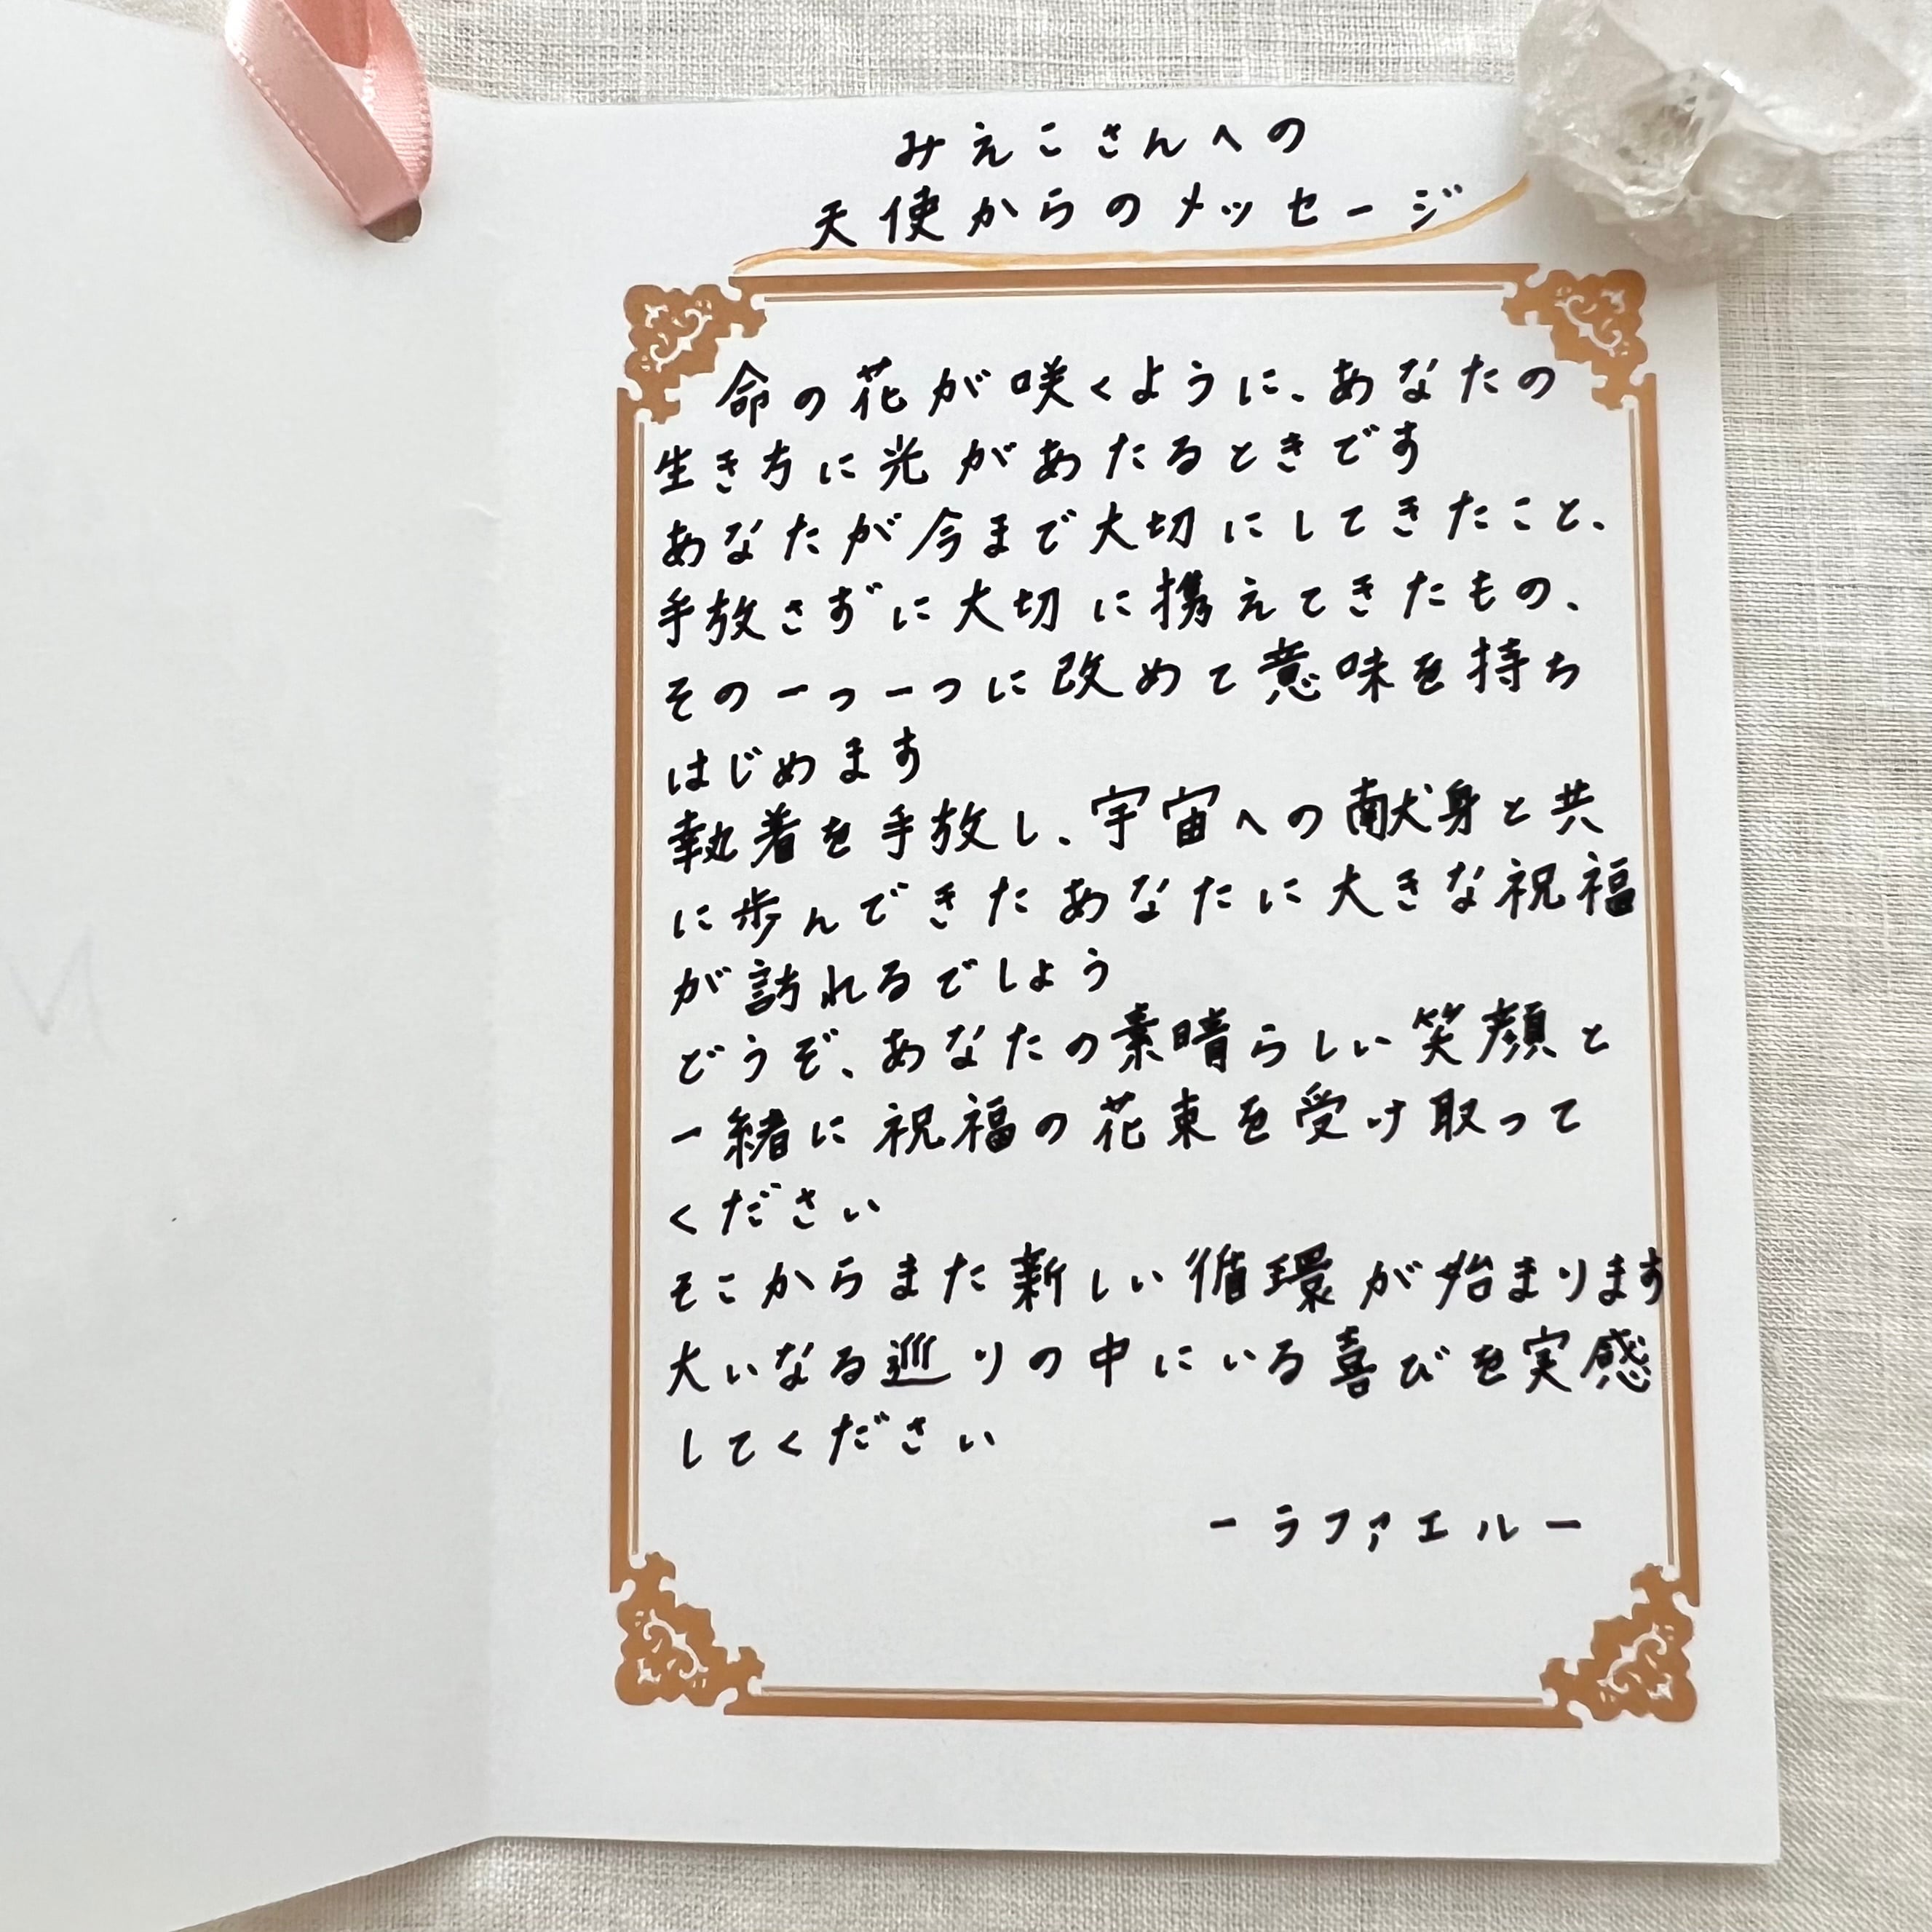 みえこさんへの
天使からのメッセージ
命の花が咲くように、あなたの
生き方に光があたるときです
あなたが今まで大切にしてきたこと、
手放さずに大切に携えてきたもの、
その一つ一つに改めて意味を持ち
はじめます
執着を手放し、宇宙への献身と共
に歩んできたあなたに大きな祝福
が訪れるでしょう
どうぞ、あなたの素晴らしい笑顔と
一緒に祝福の花束を受け取って
ください
そこからまた新しい循環が始まります
大いなる巡りの中にいる喜びを実感
してください
ーラファエルー